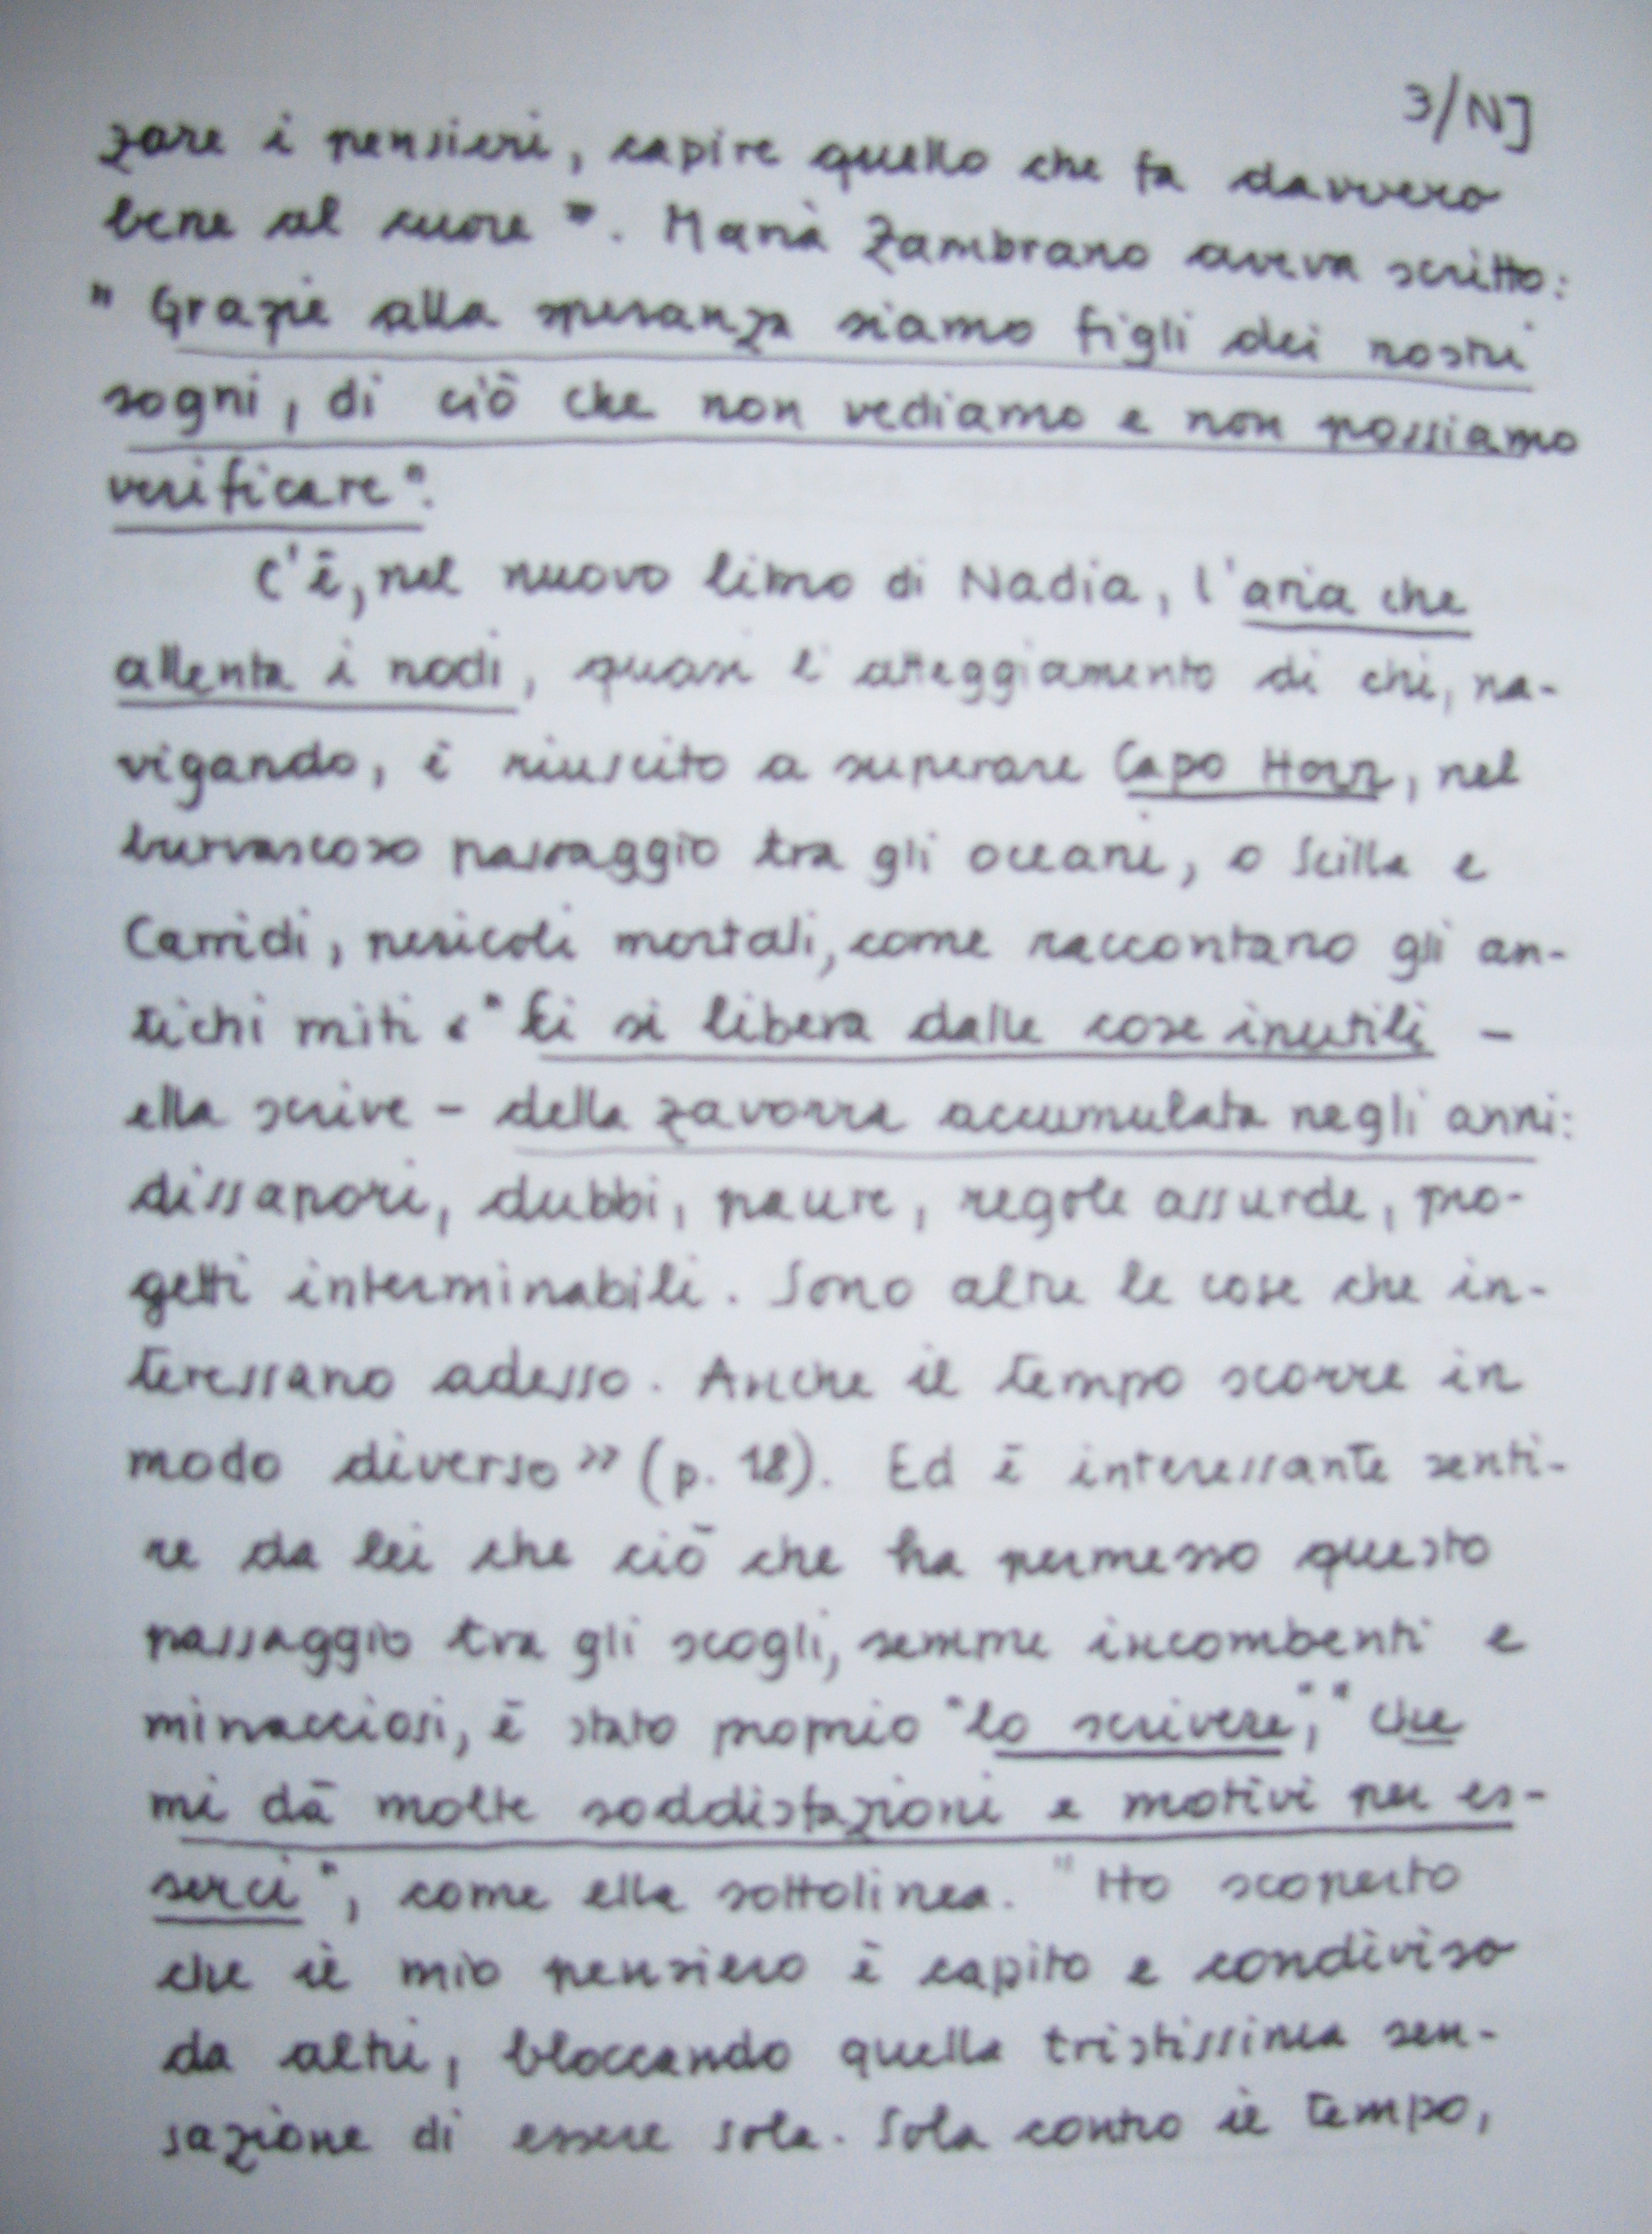 3/NJ
zare i pensieri, capire quello che fa davvero
bene al cuore". Marià Zambrano aveva scritto:
"Grazie alla speranza siamo figli dei nostri
sogni, di ciò che non vediamo e non possiamo
verificare".
C'è, nel nuovo libro di Nadia, l'aria che
allenta i nodi, quasi l'atteggiamento di chi, na-
vigando, è riuscito a superare Capo Horn, nel
burrascoso passaggio tra gli oceani, o Scilla e
Cariddi, pericoli mortali, come raccontano gli an-
tichi miti. "Ci si libera dalle cose inutili –
ella scrive – della zavorra accumulata negli anni:
dissapori, dubbi, paure, regole assurde, pro-
getti interminabili. Sono altre le cose che in-
teressano adesso. Anche il tempo scorre in
modo diverso» (p. 18). Ed è interessante senti-
re da lei che ciò che ha permesso questo
passaggio tra gli scogli, sempre incombenti e
minacciosi, è stato proprio "lo scrivere", "che
mi dà molte soddisfazioni e motivi per es-
serci", come ella sottolinea. "Ho scoperto
che il mio pensiero è capito e condiviso
da altri, bloccando quella tristissima sen-
sazione di essere sola. Sola contro il tempo,